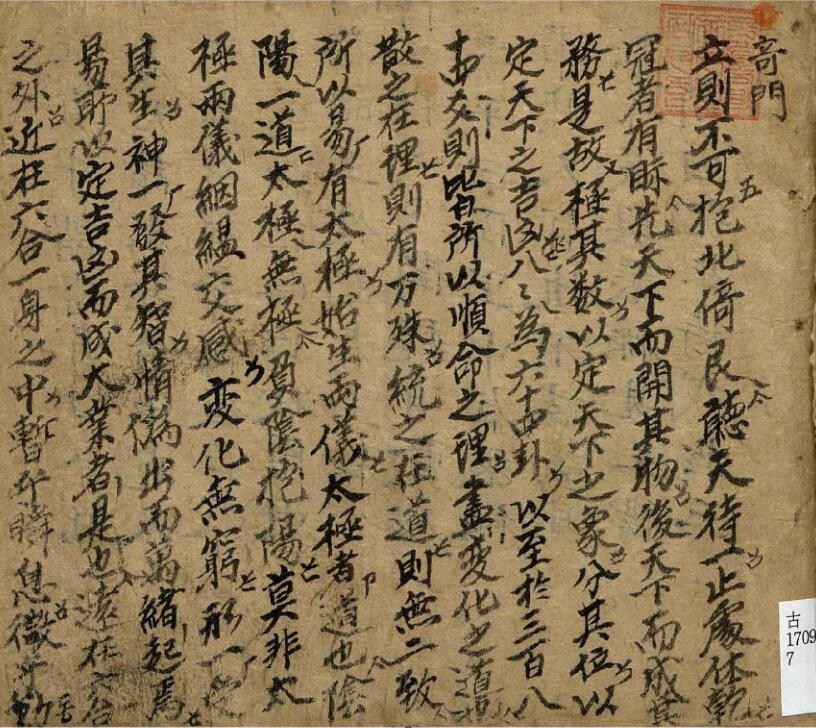 奇門
立則不可抱北倚艮聽天待一止處休乾
冠者有時先天下而開其物後天下而成其
務是故極其数以定天下之象分其位以
定天下之吉凶八〻為六十四卦以至於三百八
十四爻則皆所以順命之理盡変化之道
散之在理則有万殊統之在道則無二致
所以易有太極始生兩儀太極者道也陰
陽一道太極無極負陰抱陽莫非太
極兩儀絪縕交感変化無窮形一受
其生神一發其智情偽出而萬緒起焉
易所以定吉凶而成大業者是也遠在六合
之外近在六合一身之中暫於瞬息微于動
古
1709
7